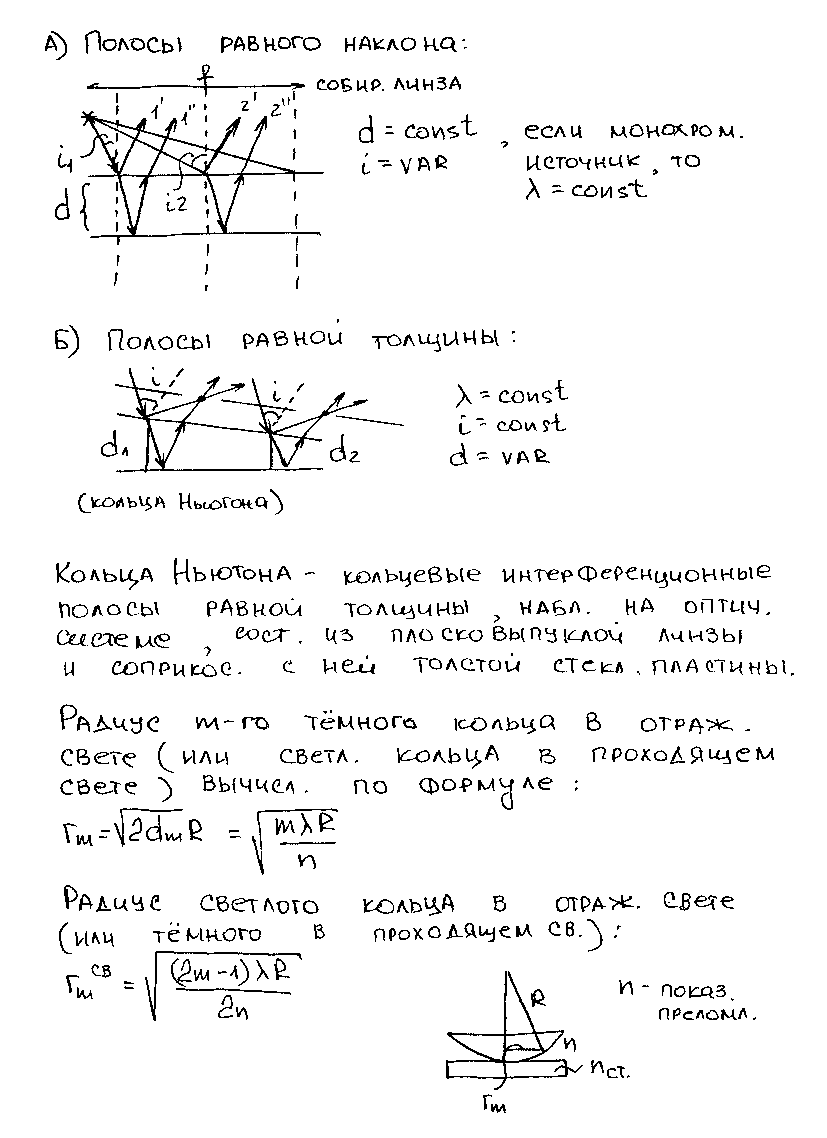 А) Полосы равного наклона:
f
собир. линза
1' 1'' 2' 2''
i₁ i₂
d
d = const , если монохром.
i = var источник, то
λ = const
Б) Полосы равной толщины:
i i
d₁ d₂
λ = const
i = const
d = var
(кольца Ньютона)
Кольца Ньютона - кольцевые интерференционные
полосы равной толщины, набл. на оптич.
системе, сост. из плоско выпуклой линзы
и соприкос. с ней толстой стекл. пластины.
Радиус m-го тёмного кольца в отраж.
свете (или светл. кольца в проходящем
свете) вычисл. по формуле:
rₘ = √(2dₘR) = √(mλR/n)
Радиус светлого кольца в отраж. свете
(или тёмного в проходящем св.):
rₘ^св = √((2m-1)λR/2n)
n - показ.
преломл.
R
n
n ст.
rₘ